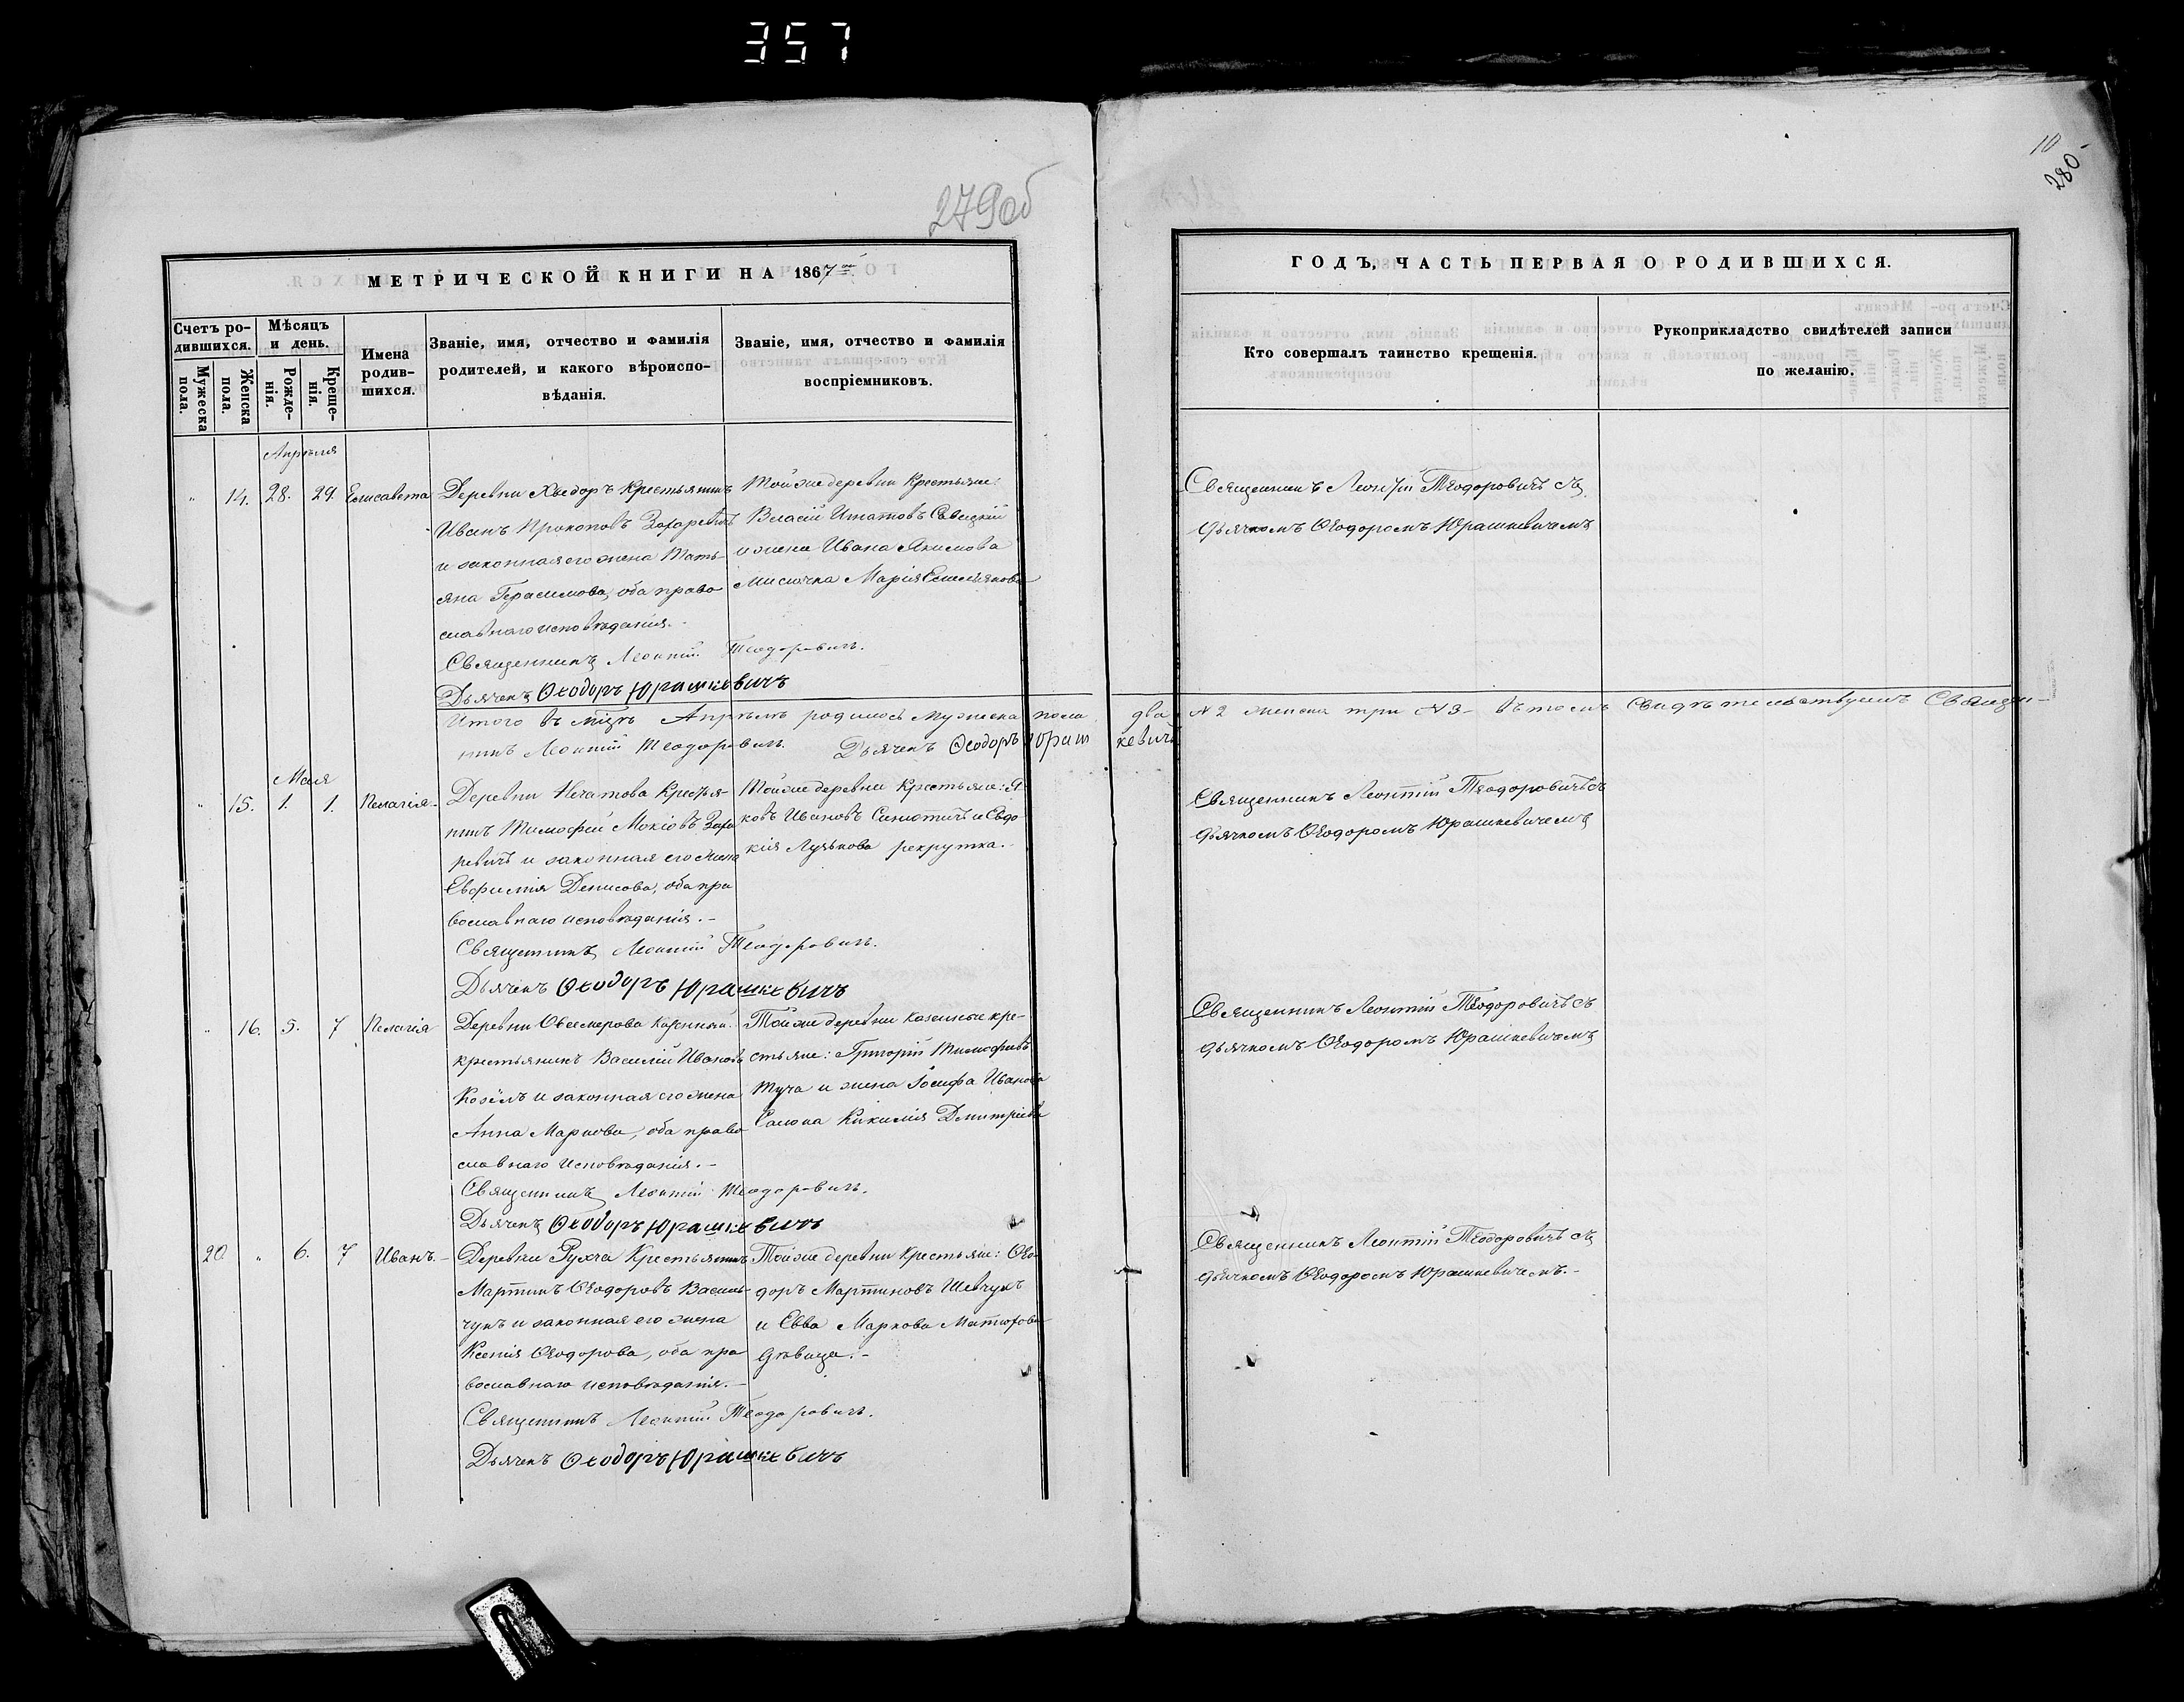 357
279 об
10
280
МЕТРИЧЕСКОЙ КНИГИ НА 1867
ГОДЪ, ЧАСТЬ ПЕРВАЯ О РОДИВШИХСЯ.
Счетъ ро-
дившихся.
Мужеска
пола.
Женска
пола.
Мѣсяцъ
и день.
Рожде-
нія.
Креще-
нія.
Имена
родив-
шихся.
Званіе, имя, отчество и фамилія
родителей, и какого вѣроиспо-
вѣданія.
Званіе, имя, отчество и фамилія
воспріемниковъ.
Кто совершалъ таинство крещенія.
Рукоприкладство свидѣтелей записи
по желанію.
Апрѣля
" 14. 28. 29. Елисавета
Деревни Хведоръ Крестьянинъ
Иванъ Прокоповъ Захаревичъ
и законная его жена Тать-
яна Герасимова, оба право
славнаго исповѣданія.
Священникъ Леонтій Теодоровичъ.
Дьячекъ Ѳеодоръ Юрашкевичъ
Той же деревни Крестьяне:
Власій Игнатовъ Савицкій
и жена Ивана Якимова
Мисючка Марія Емельянова
Священникъ Леонтій Теодоровичъ съ
дьячкомъ Ѳеодоромъ Юрашкевичемъ
Итого въ мцѣ Апрѣлѣ родилось мужеска пола два №2 женска три №3 - въ томъ свидѣтельствуемъ Священ-
никъ Леонтій Теодоровичъ. Дьячекъ Ѳеодоръ Юрашкевичъ
Мая
" 15. 1. 1. Пелагія
Деревни Нечатова Крестья-
нинъ Тимофей Мокіовъ Заха
ревичъ и законная его жена
Евфимія Денисова, оба пра
вославнаго исповѣданія.-
Священникъ Леонтій Теодоровичъ.
Дьячекъ Ѳеодоръ Юрашкевичъ
Той же деревни Крестьяне: Я
ковъ Ивановъ Симотичъ и Евдо
кія Лукьнова рекрутка.
Священникъ Леонтій Теодоровичъ съ
дьячкомъ Ѳеодоромъ Юрашкевичемъ
" 16. 5. 7 Пелагія
Деревни Овсемерова Казенный
крестьянинъ Василій Ивановъ
Козёлъ и законная его жена
Анна Маркова, оба право
славнаго исповѣданія.-
Священникъ Леонтій Теодоровичъ.
Дьячекъ Ѳеодоръ Юрашкевичъ
Той же деревни казенные кре-
стьяне: Григорій Тимофѣевъ
Туча и жена Іосифа Иванова
Киликія Дмитріева
Священникъ Леонтій Теодоровичъ съ
дьячкомъ Ѳеодоромъ Юрашкевичемъ
20 " 6. 7 Иванъ.-
Деревни Рухча Крестьянинъ
Мартинъ Ѳеодоровъ Василь-
чукъ и законная его жена
Ксенія Ѳеодорова, оба пра
вославнаго исповѣданія.-
Священникъ Леонтій Теодоровичъ.
Дьячекъ Ѳеодоръ Юрашкевичъ
Той же деревни Крестьяне: Ѳео
доръ Мартиновъ Шевчукъ
и Евва Маркова Матюхова
дѣвица.-
Священникъ Леонтій Теодоровичъ съ
дьячкомъ Ѳеодоромъ Юрашкевичемъ.-